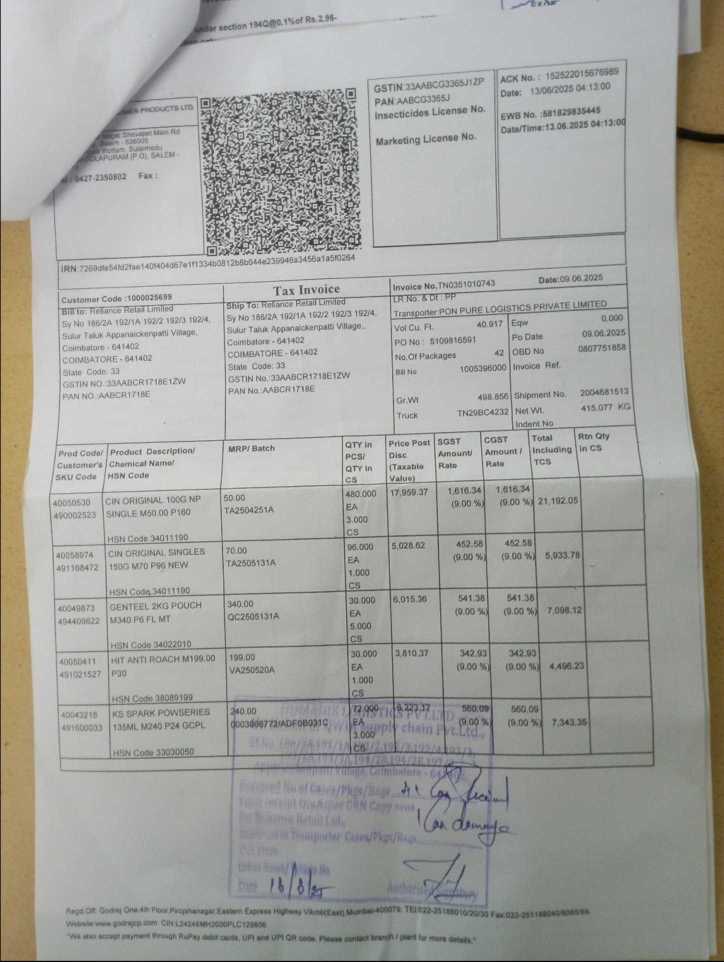 under section 194Q@0.1% of Rs.2.96-
PRODUCTS LTD.
Shevapet Main Rd
Salem - 636005
(P.O), SALEM -
0427-2350802 Fax :
GSTIN:33AABCG3365J1ZP
PAN:AABCG3365J
Insecticides License No.
Marketing License No.
ACK No. : 152522015676989
Date: 13/06/2025 04:13:00
EWB No. :581829835445
Date/Time:13.06.2025 04:13:00
IRN:7269dfe54fd2fae140f404d67e1f1334b0812b8b044e239946a3456a1a5f0264
Tax Invoice
Customer Code :1000025699
Bill to: Reliance Retail Limited
Sy No 186/2A 192/1A 192/2 192/3 192/4,
Sulur Taluk Appanaickenpatti Village,
Coimbatore - 641402
COIMBATORE - 641402
State Code: 33
GSTIN NO.:33AABCR1718E1ZW
PAN NO.:AABCR1718E
Ship To: Reliance Retail Limited
Sy No 186/2A 192/1A 192/2 192/3 192/4,
Sulur Taluk Appanaickenpatti Village,,
Coimbatore - 641402
COIMBATORE - 641402
State Code: 33
GSTIN No.:33AABCR1718E1ZW
PAN No.:AABCR1718E
Invoice No.TN0351010743 Date:09.06.2025
LR No. & Dt : PP
Transporter:PON PURE LOGISTICS PRIVATE LIMITED
Vol Cu. Ft. 40.917 Eqw 0.000
PO No : 5109816591 Po Date 09.06.2025
No.Of Packages 42 OBD No 0807751858
Bill No 1005396000 Invoice Ref.
Gr.Wt 498.856 Shipment No. 2004681513
Truck TN29BC4232 Net Wt. 415.077 KG
Indent No
Prod Code/ Customer's SKU Code
Product Description/ Chemical Name/ HSN Code
MRP/ Batch
QTY in PCS/ QTY in CS
Price Post Disc (Taxable Value)
SGST Amount/ Rate
CGST Amount / Rate
Total Including TCS
Rtn Qty in CS
40050530 CIN ORIGINAL 100G NP 50.00 480.000 17,959.37 1,616.34 1,616.34
490002523 SINGLE M50.00 P160 TA2504251A EA (9.00 %) (9.00 %) 21,192.05
3.000
HSN Code 34011190 CS
40058974 CIN ORIGINAL SINGLES 70.00 96.000 5,028.62 452.58 452.58
491168472 150G M70 P96 NEW TA2505131A EA (9.00 %) (9.00 %) 5,933.78
1.000
HSN Code 34011190 CS
40049873 GENTEEL 2KG POUCH 340.00 30.000 6,015.36 541.38 541.38
494409622 M340 P6 FL MT QC2505131A EA (9.00 %) (9.00 %) 7,098.12
5.000
HSN Code 34022010 CS
40050411 HIT ANTI ROACH M199.00 199.00 30.000 3,810.37 342.93 342.93
491021527 P30 VA250520A EA (9.00 %) (9.00 %) 4,496.23
1.000
HSN Code 38089199 CS
40043218 KS SPARK POWSERIES 240.00 72.000 6,223.37 560.09 560.09
491600033 135ML M240 P24 GCPL 0003086772/ADF0B031C EA (9.00 %) (9.00 %) 7,343.35
3.000
HSN Code 33030050 CS
LOGISTICS PVT.LTD
Supply chain Pvt.Ltd.,
Village, Coimbatore -
No of Cases/Pkgs/Bags
41 Can Received
GRN Copy
Retail Ltd.,
1 Can damage
Transporter Cases/Pkgs/Bags
Date 16/6/25
Regd.Off: Godrej One,4th Floor,Pirojshanagar,Eastern Express Highway Vikroli(East),Mumbai-400079. Tel:022-25188010/20/30 Fax:022-25188040/8065/69
Website:www.godrejcp.com CIN:L24246MH2000PLC129806
"We also accept payment through RuPay debit cards, UPI and UPI QR code. Please contact branch / plant for more details."